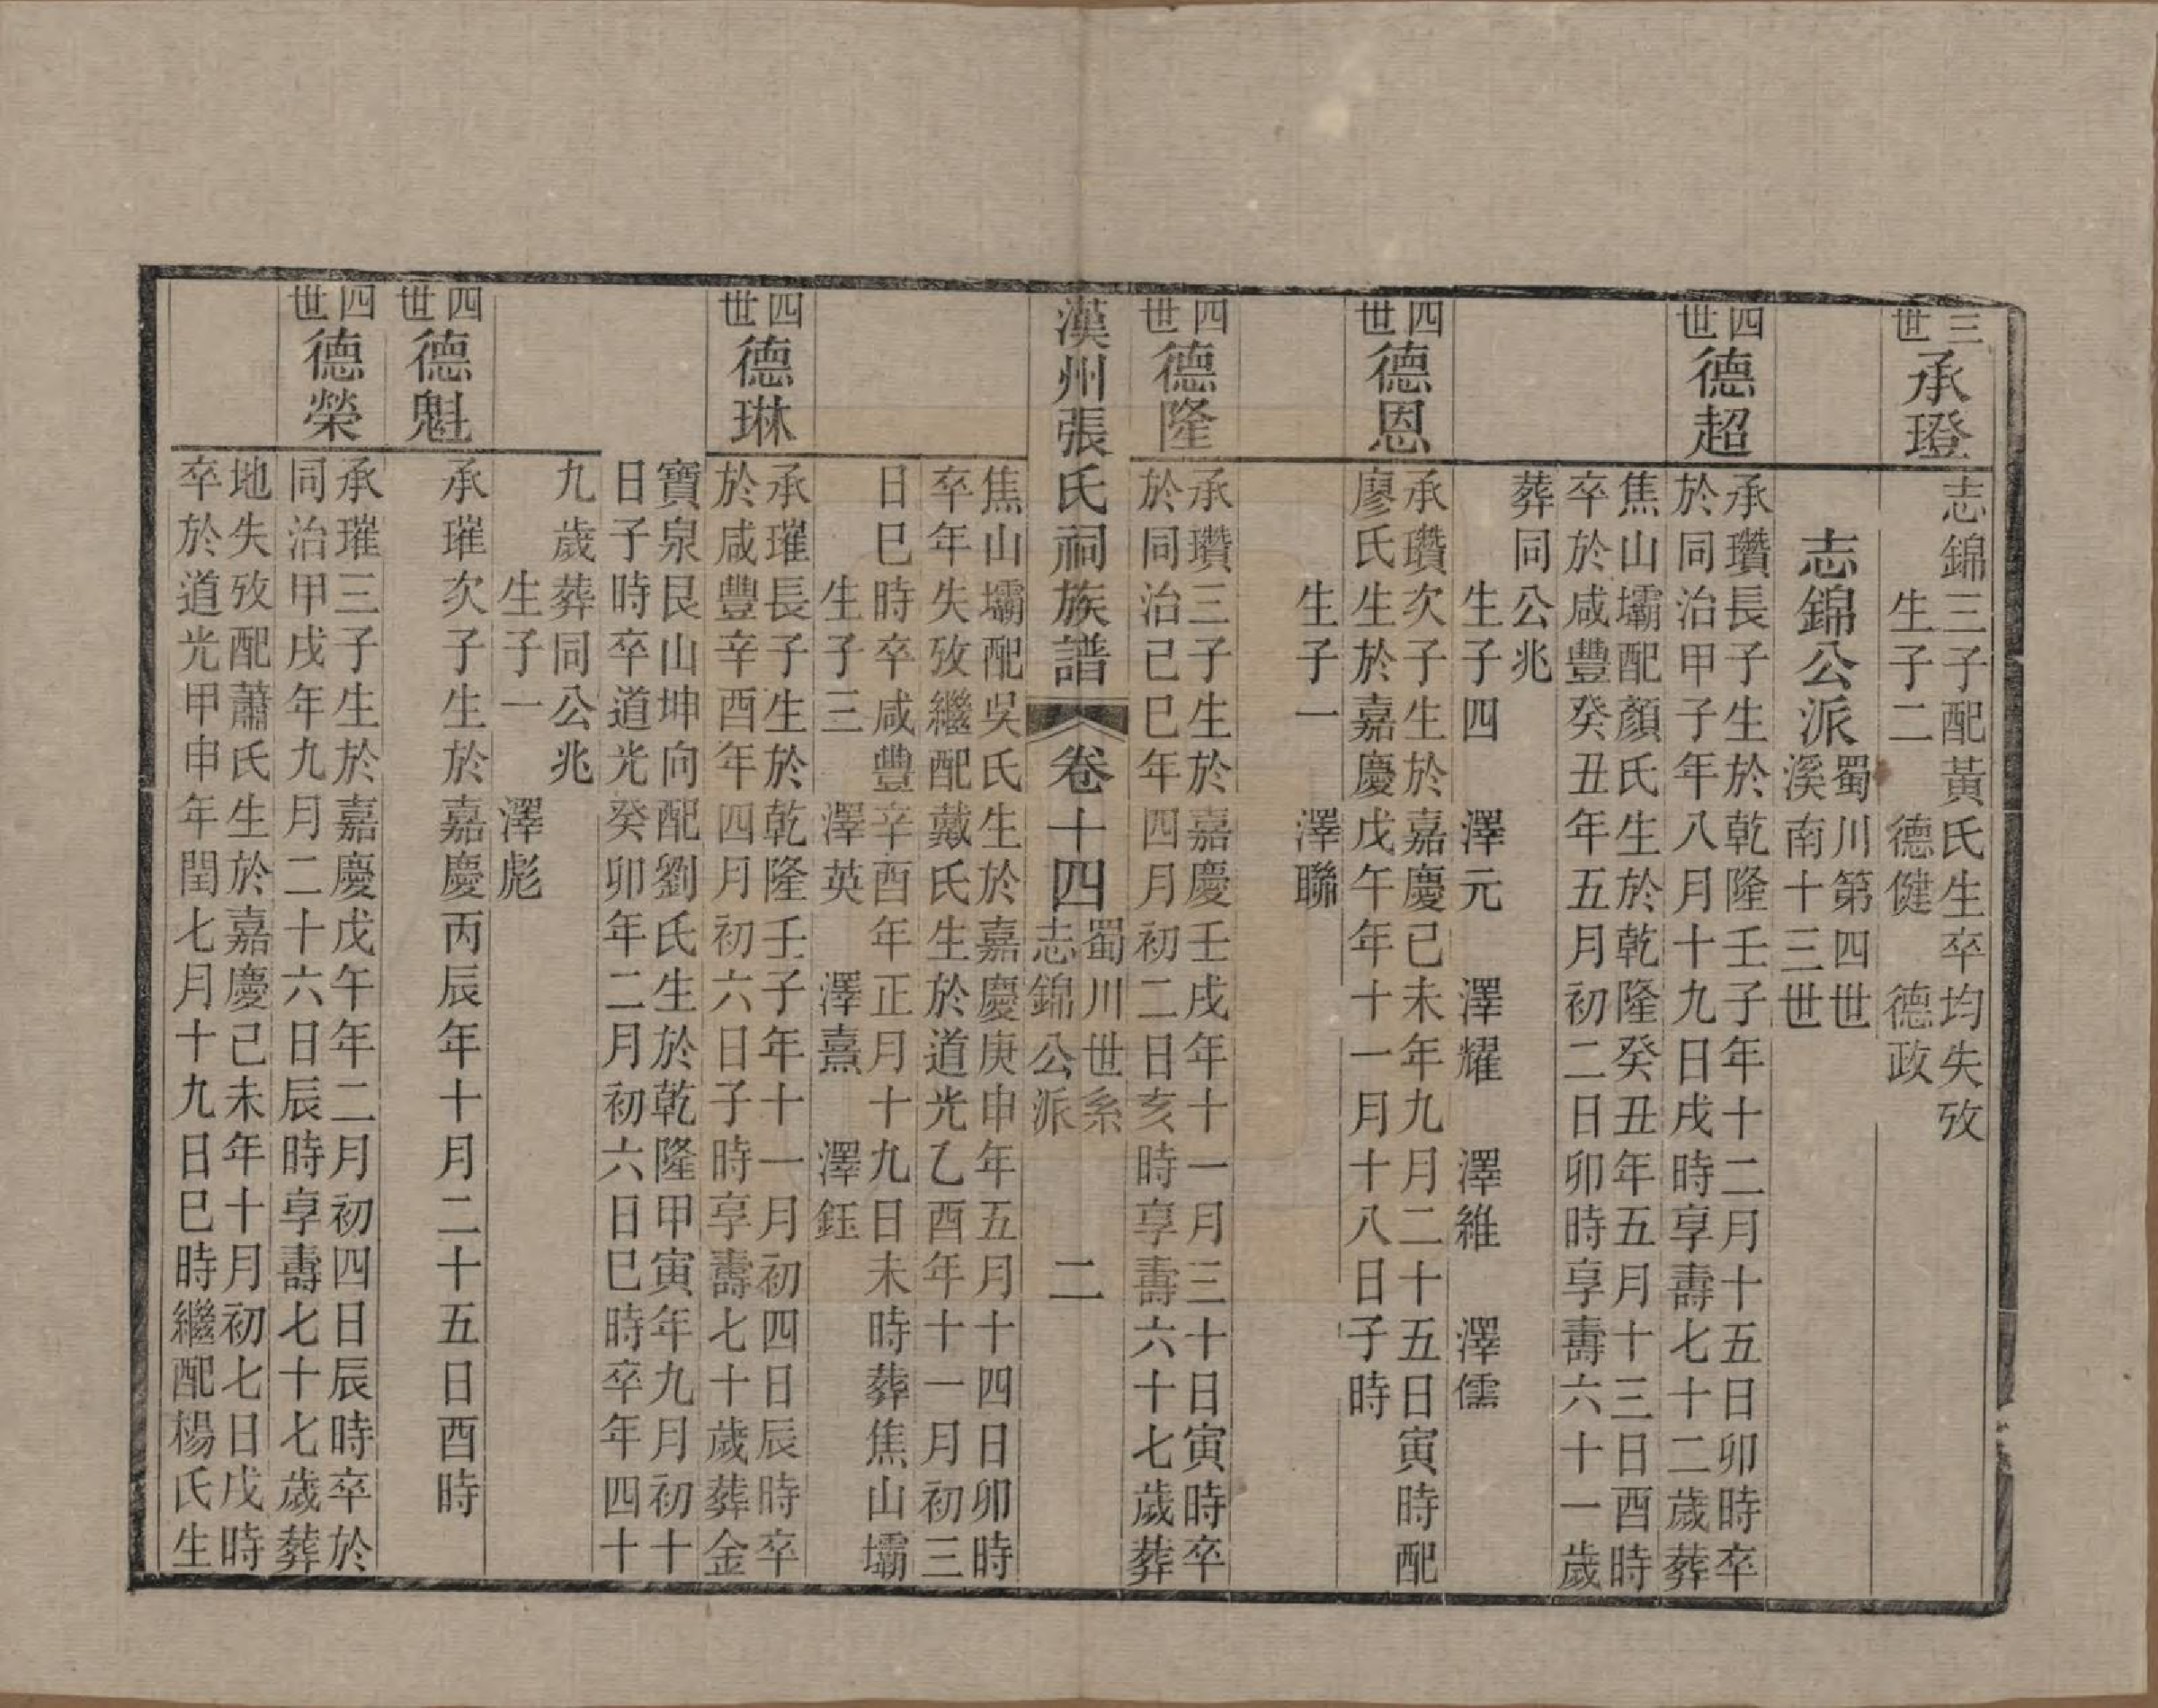 三世 承璒
志錦三子配黃氏生卒均失攷
生子二 德健 德政
志錦公派
蜀川第四世
溪南十三世
四世 德超
承瓚長子生於乾隆壬子年十二月十五日卯時卒
於同治甲子年八月十九日戌時享壽七十二歲葬
焦山壩配顏氏生於乾隆癸丑年五月十三日酉時
卒於咸豐癸丑年五月初二日卯時享壽六十一歲
葬同公兆
生子四 澤元 澤耀 澤維 澤儒
四世 德恩
承瓚次子生於嘉慶己未年九月二十五日寅時配
廖氏生於嘉慶戊午年十一月十八日子時
生子一 澤聯
四世 德隆
承瓚三子生於嘉慶壬戌年十一月三十日寅時卒
於同治己巳年四月初二日亥時享壽六十七歲葬
漢州張氏祠族譜 卷十四
蜀川世系
志錦公派
二
焦山壩配吳氏生於嘉慶庚申年五月十四日卯時
卒年失攷繼配戴氏生於道光乙酉年十一月初三
日巳時卒咸豐辛酉年正月十九日未時葬焦山壩
生子三 澤英 澤熹 澤鈺
四世 德琳
承璀長子生於乾隆壬子年十一月初四日辰時卒
於咸豐辛酉年四月初六日子時享壽七十歲葬金
寶泉艮山坤向配劉氏生於乾隆甲寅年九月初十
日子時卒道光癸卯年二月初六日巳時卒年四十
九歲葬同公兆
生子一 澤彪
四世 德魁
承璀次子生於嘉慶丙辰年十月二十五日酉時
四世 德榮
承璀三子生於嘉慶戊午年二月初四日辰時卒於
同治甲戌年九月二十六日辰時享壽七十七歲葬
地失攷配蕭氏生於嘉慶己未年十月初七日戌時
卒於道光甲申年閏七月十九日巳時繼配楊氏生